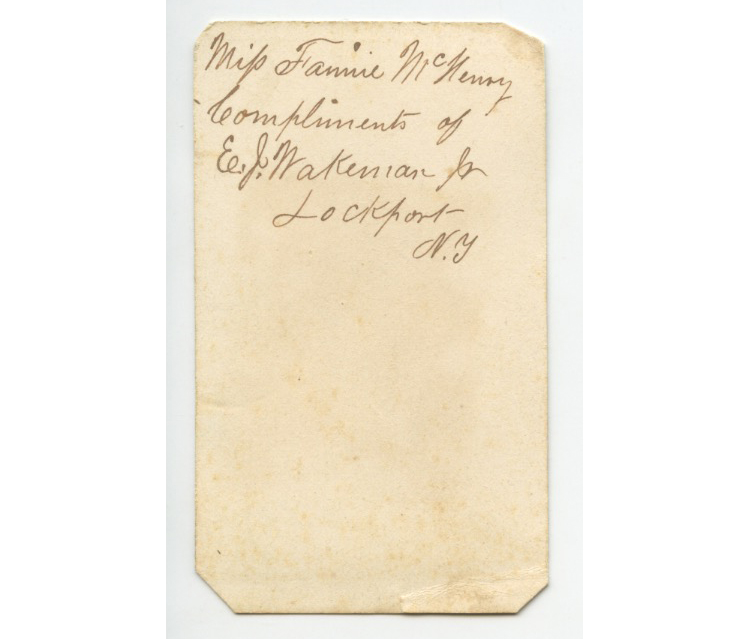 Miss Fannie McHenry
Compliments of
E. J. Wakeman Jr
Lockport
N.Y